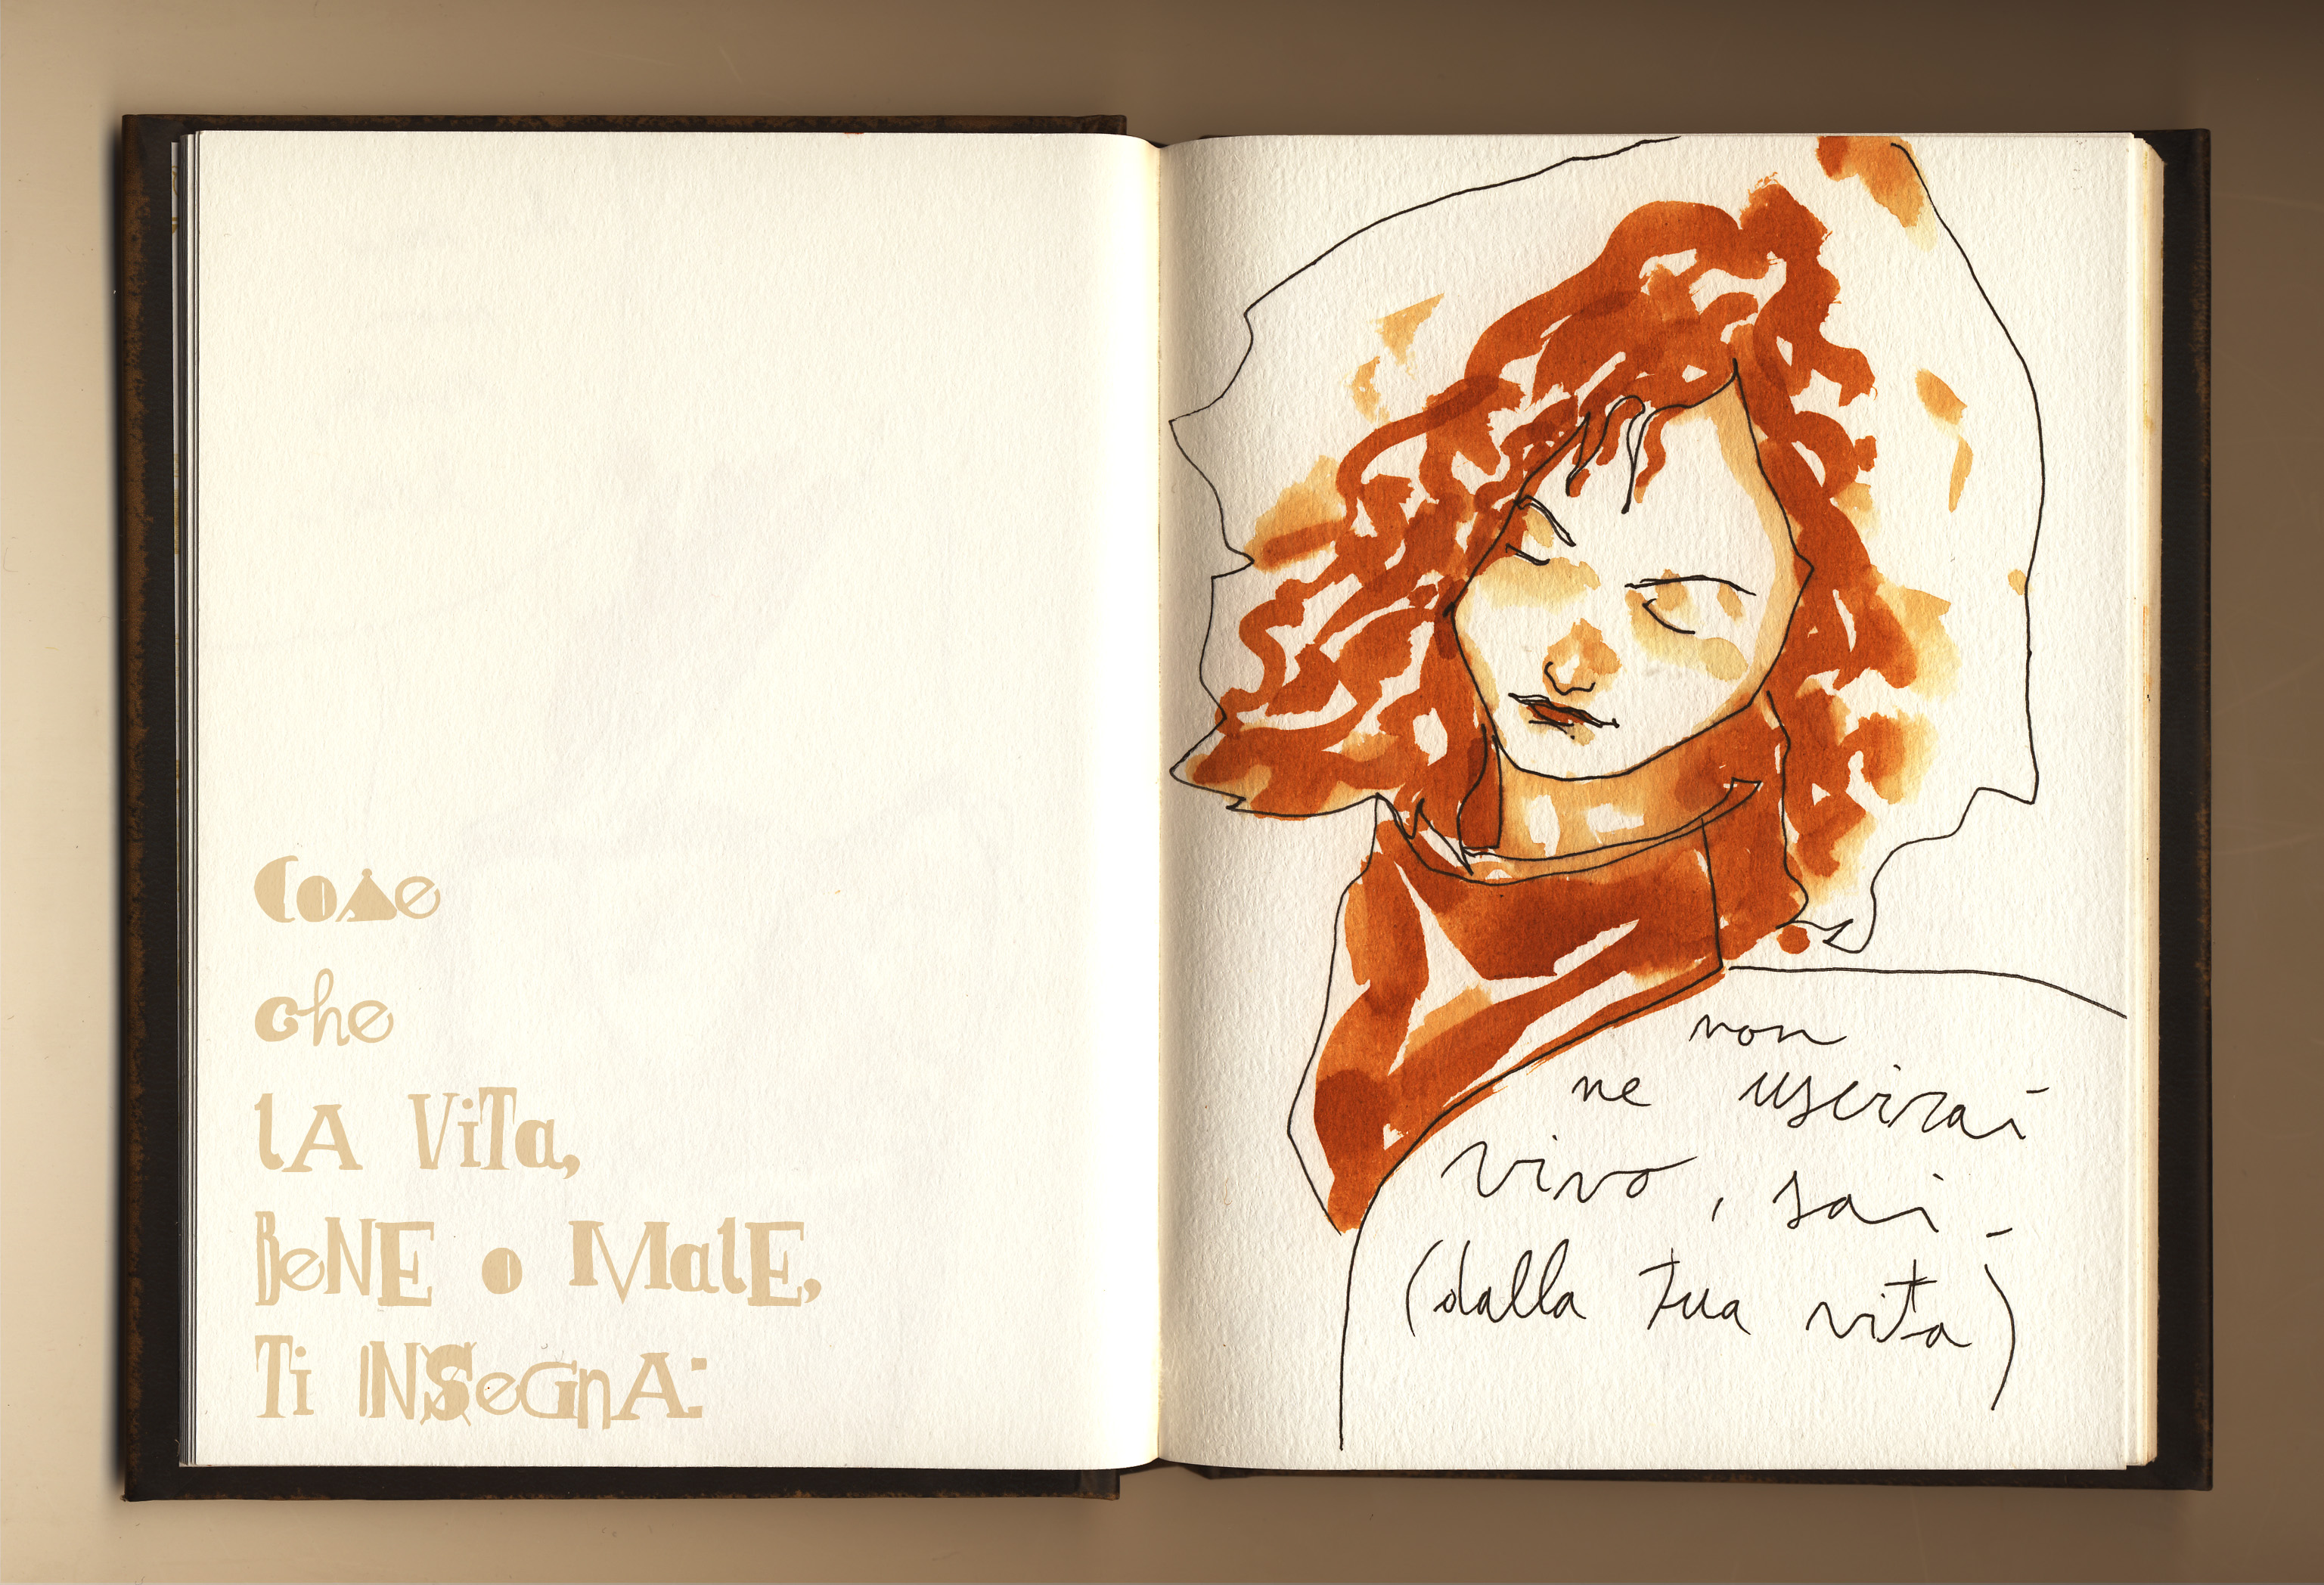 Come
che
lA ViTa,
BeNE o MalE,
Ti INSeGnA:
non
ne uscirai
vivo, sai -
(dalla tua vita)